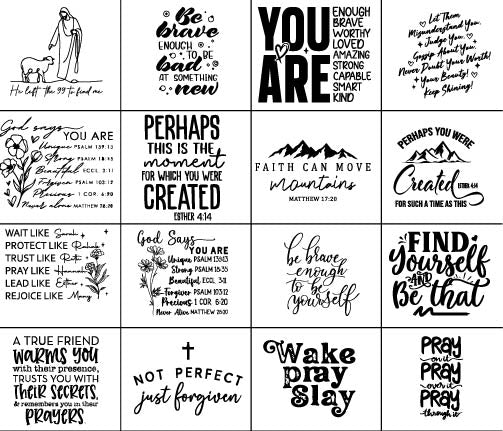 He left the 99 to find me
Be
brave
ENOUGH
TO BE
bad
AT SOMETHING
new
YOU
ARE
ENOUGH
BRAVE
WORTHY
LOVED
AMAZING
STRONG
CAPABLE
SMART
KIND
Let Them
Misunderstand You.
Judge You.
Gossip About You.
Never Doubt Your Worth!
Your Beauty!
Keep Shining!
God says
YOU ARE
Unique PSALM 139:13
Strong PSALM 18:35
Beautiful ECCL 3:11
Forgiven PSALM 103:12
Precious 1 COR. 6:20
Never alone MATTHEW 28:20
PERHAPS
THIS IS THE
moment
FOR WHICH YOU WERE
CREATED
ESTHER 4:14
FAITH CAN MOVE
mountains
MATTHEW 17:20
PERHAPS YOU WERE
Created
ESTHER 4:14
FOR SUCH A TIME AS THIS
WAIT LIKE Sarah
PROTECT LIKE Rahab
TRUST LIKE Ruth
PRAY LIKE Hannah
LEAD LIKE Esther
REJOICE LIKE Mary
God Says
YOU ARE
Unique PSALM 139:13
Strong PSALM 18:35
Beautiful ECCL 3:11
Forgiven PSALM 103:12
Precious 1 COR 6:20
Never Alone MATTHEW 28:20
be brave
enough
to be
yourself
FIND
Yourself
AND
Be that
A TRUE FRIEND
WARMS YOU
with their presence,
TRUSTS YOU WITH
THEIR SECRETS,
& remembers you in their
PRAYERS.
NOT PERFECT
just forgiven
Wake
pray
Slay
PRAY
on it
PRAY
over it
PRAY
through it